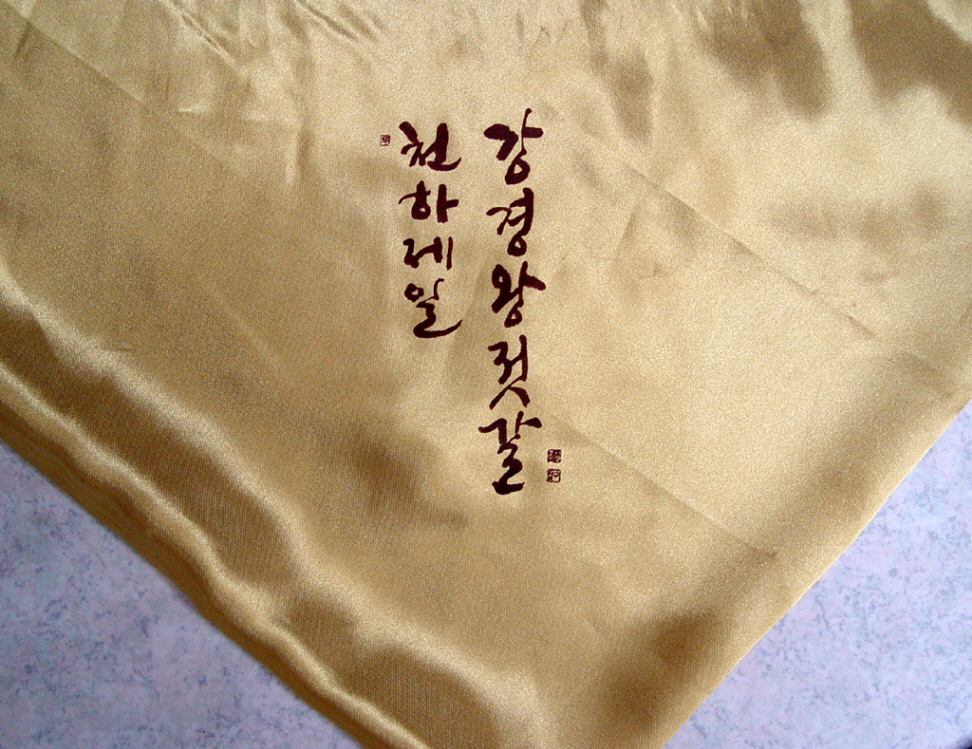 강경왕젓갈
천하제일